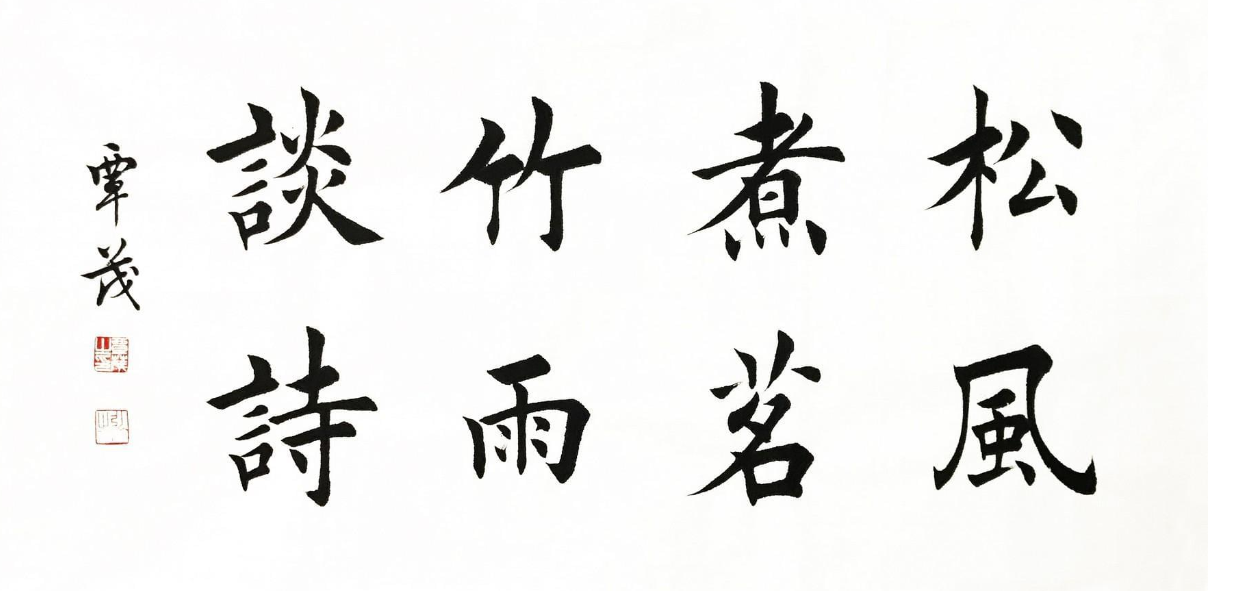 松風
煮茗
竹雨
談詩
覃茂